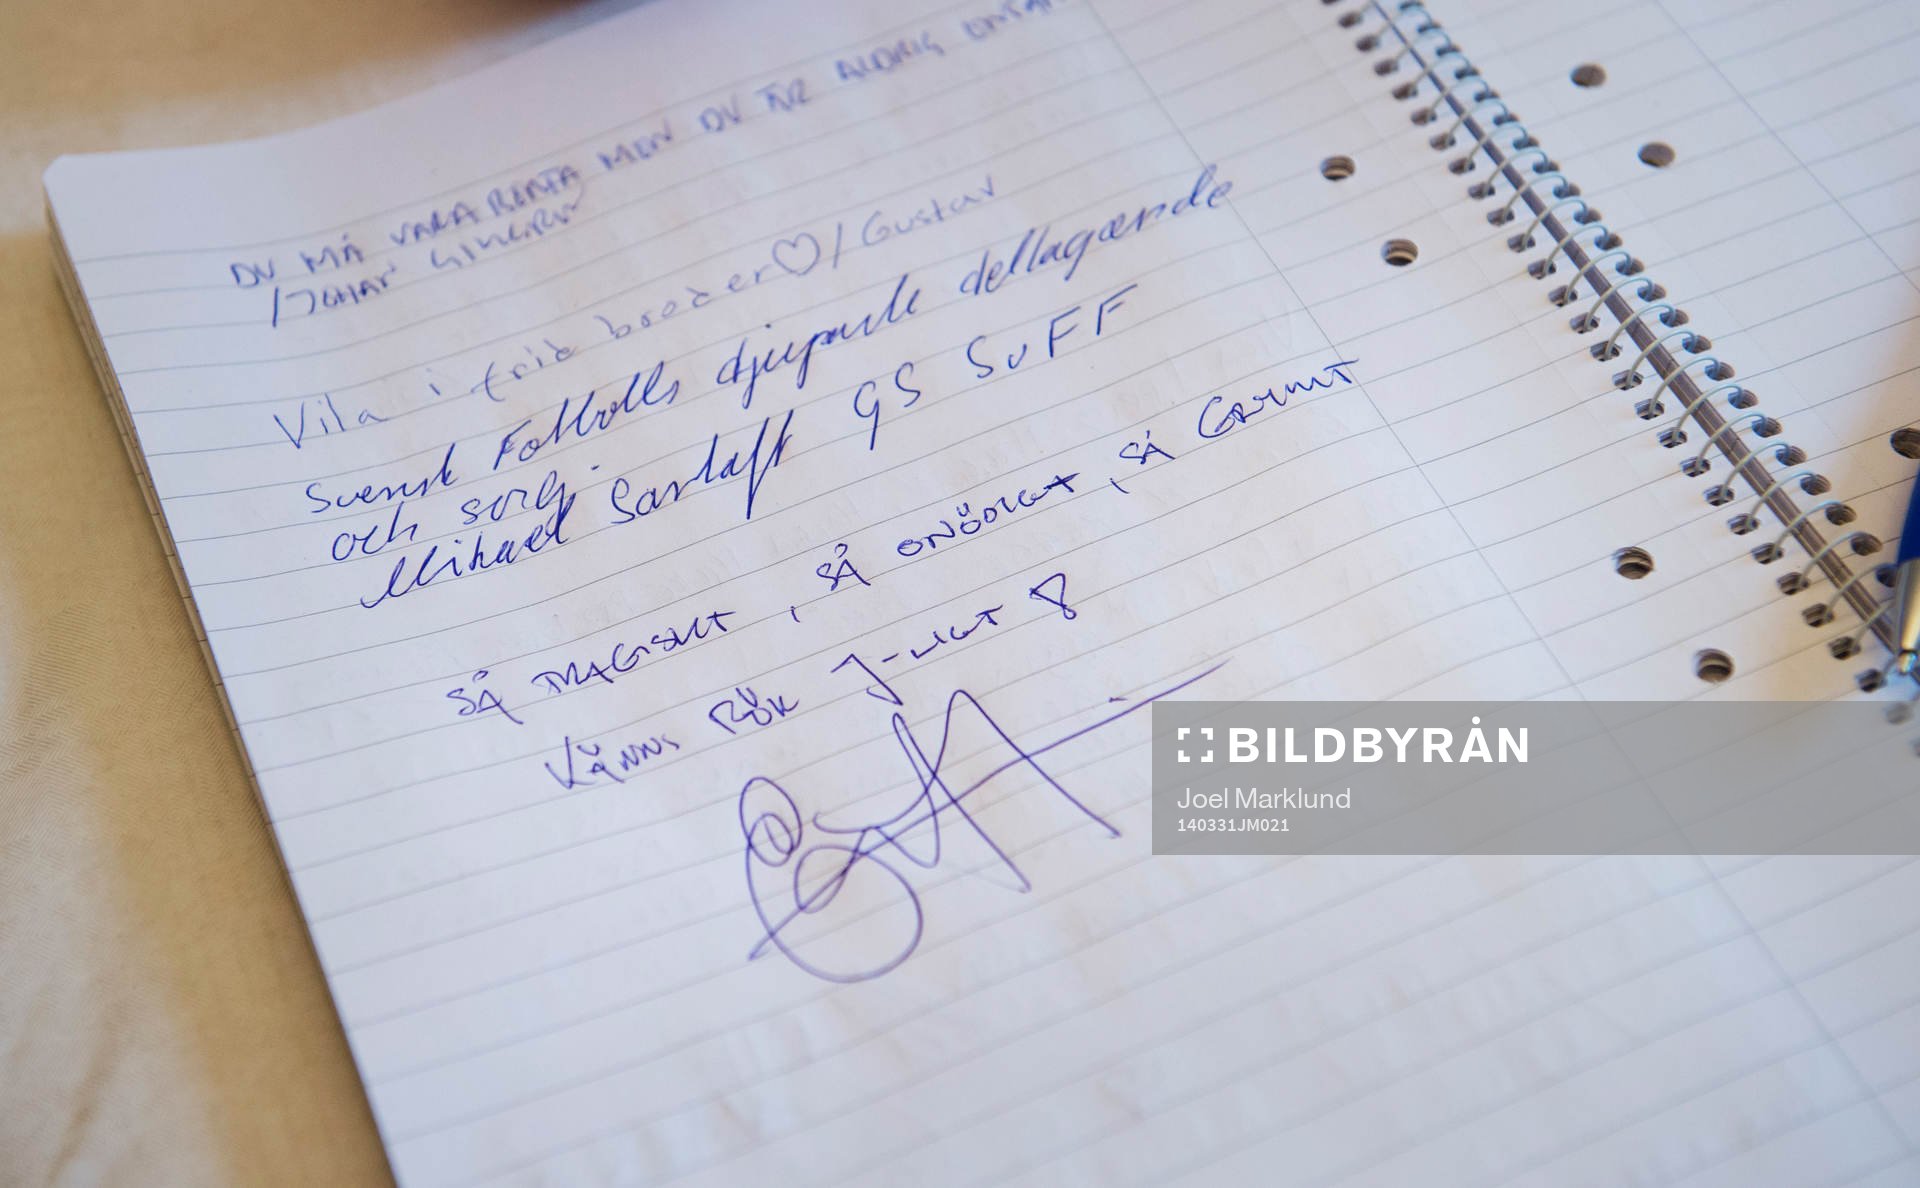 DU MÅ VARA BORTA MEN DU ÄR ALDRIG
/JOHAN
Vila i frid broder♡/Gustav
Svensk Fotbolls djupaste deltagande
och sorg.
Mikael Santoft GS SvFF
SÅ TRAGISKT, SÅ ONÖDIGT, SÅ GRYMT
VÄNNS FÖR J-LIGT
BILDBYRÅN
Joel Marklund
140331JM021